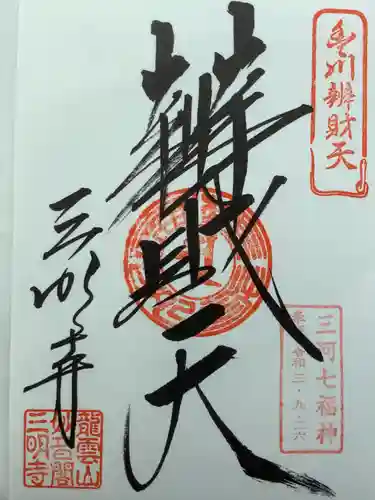 豊川辨財天
辨財天
三明寺
三河七福神
奉拝 令和三・九・二六
龍雲山
妙音閣
三明寺